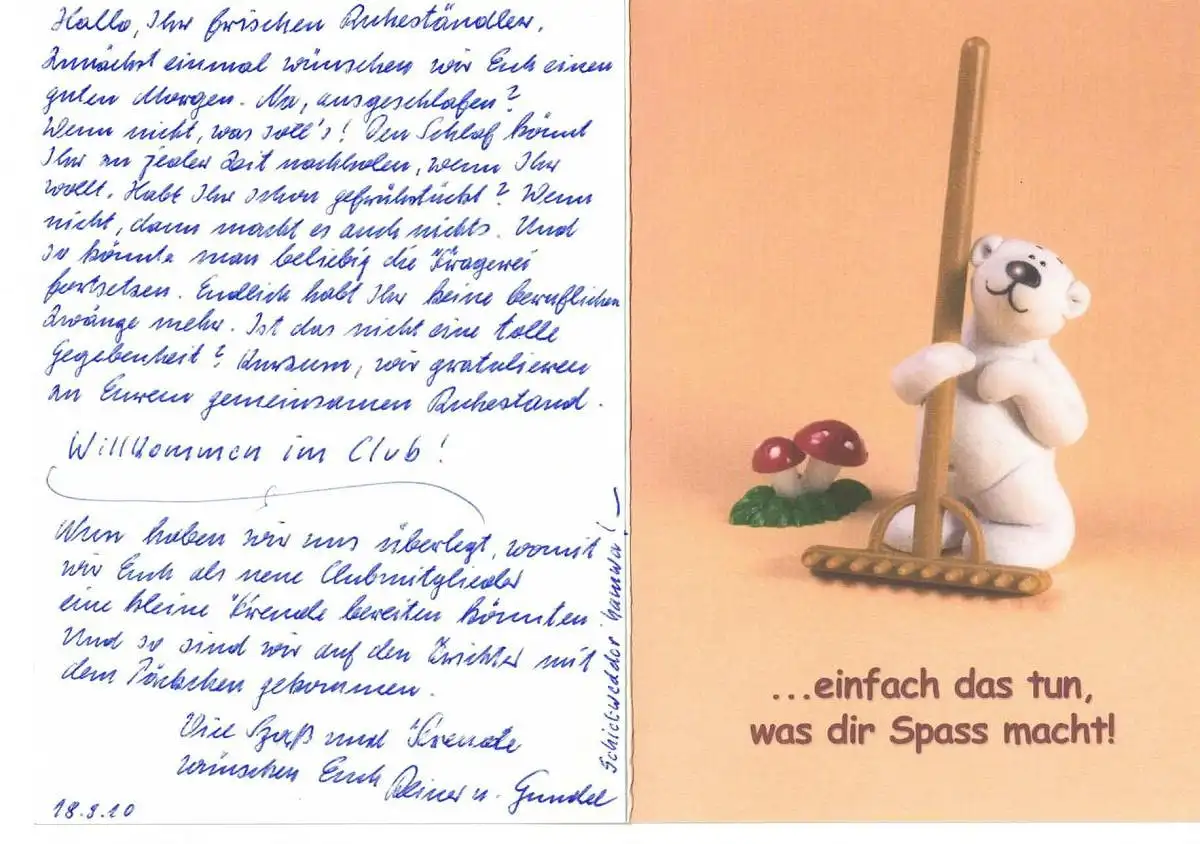 Hallo, Ihr frischen Ruheständler.
Zunächst einmal wünschen wir Euch einen
guten Morgen. Na, ausgeschlafen?
Wenn nicht, was soll's! Den Schlaf könnt
Ihr zu jeder Zeit nachholen, wenn Ihr
wollt. Habt Ihr schon gefrühstückt? Wenn
nicht, dann macht es auch nichts. Und
so könnte man beliebig die Fragerei
fortsetzen. Endlich habt Ihr keine beruflichen
Zwänge mehr. Ist das nicht eine tolle
Gegebenheit? Kurzum, wir gratulieren
zu Eurem gemeinsamen Ruhestand.
Willkommen im Club!
Nun haben wir uns überlegt, womit
wir Euch als neue Clubmitglieder
eine kleine Freude bereiten könnten.
Und so sind wir auf den Trichter mit
dem Päckchen gekommen.
Viel Spaß und Freude
wünschen Euch Reiner u. Gundel
18.9.10
...einfach das tun,
was dir Spass macht!